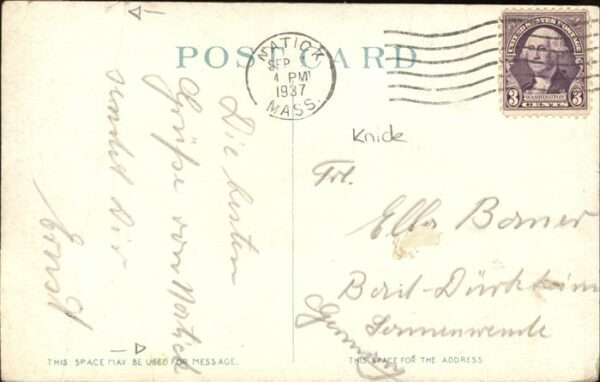 POST CARD
NATICK
SEP
4 PM
1937
MASS.
UNITED STATES POSTAGE
3 WASHINGTON 3
CENTS
Knide
Die besten
Grüße von Natick
sendet Dir
Ernst
Frl.
Ella Borner
Bad-Dürkheim
Sonnenwende
Germany
THIS SPACE MAY BE USED FOR MESSAGE.
THIS SPACE FOR THE ADDRESS